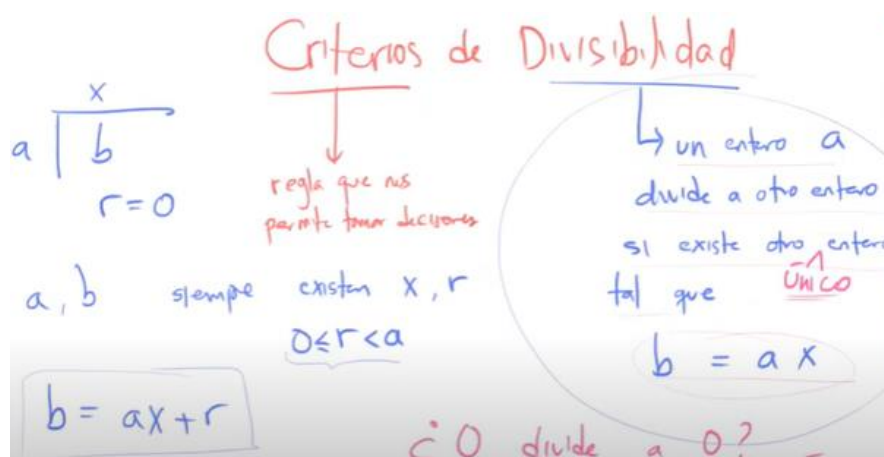 Criterios de Divisibilidad
x
a b
r=0
regla que nos
permite tomar decisiones
un entero a
divide a otro entero
si existe otro
único
tal que
b = a x
a, b siempre existen x, r
0≤r<a
b= ax+r
¿0 divide a 0?